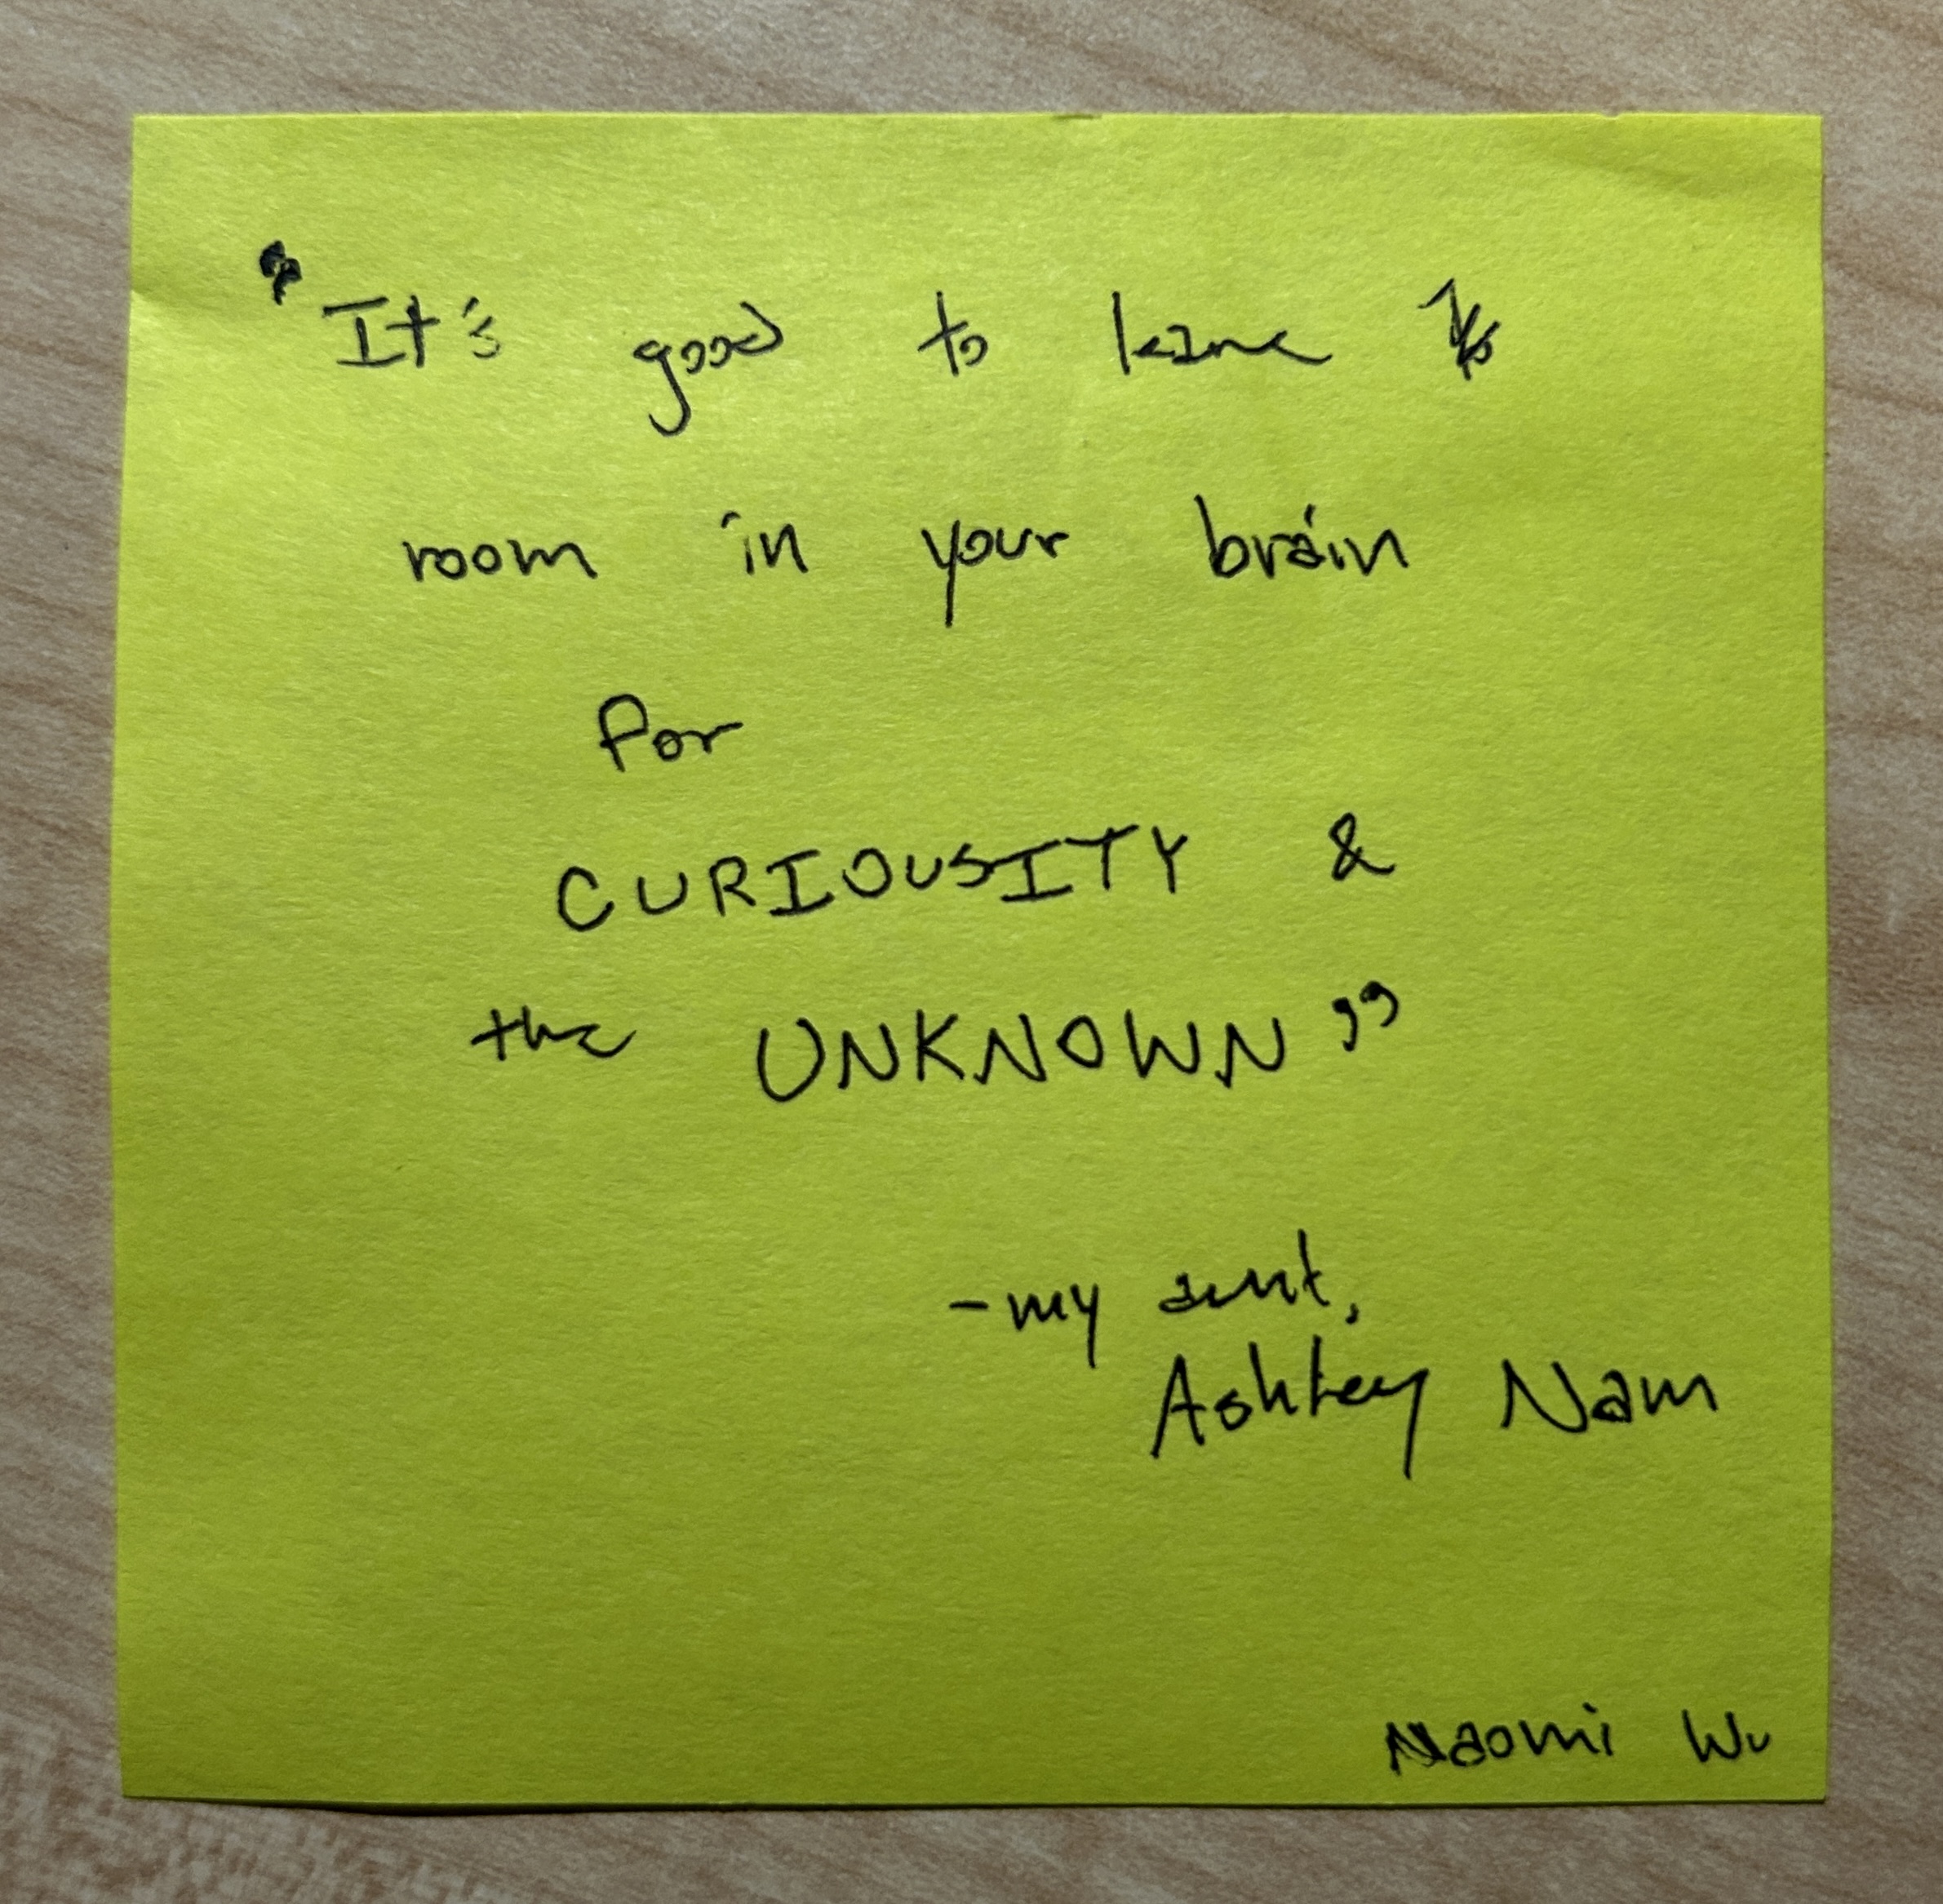 "It's good to leave
room in your brain
for
CURIOUSITY &
the UNKNOWN"
-my aunt,
Ashley Nam
Naomi Wu